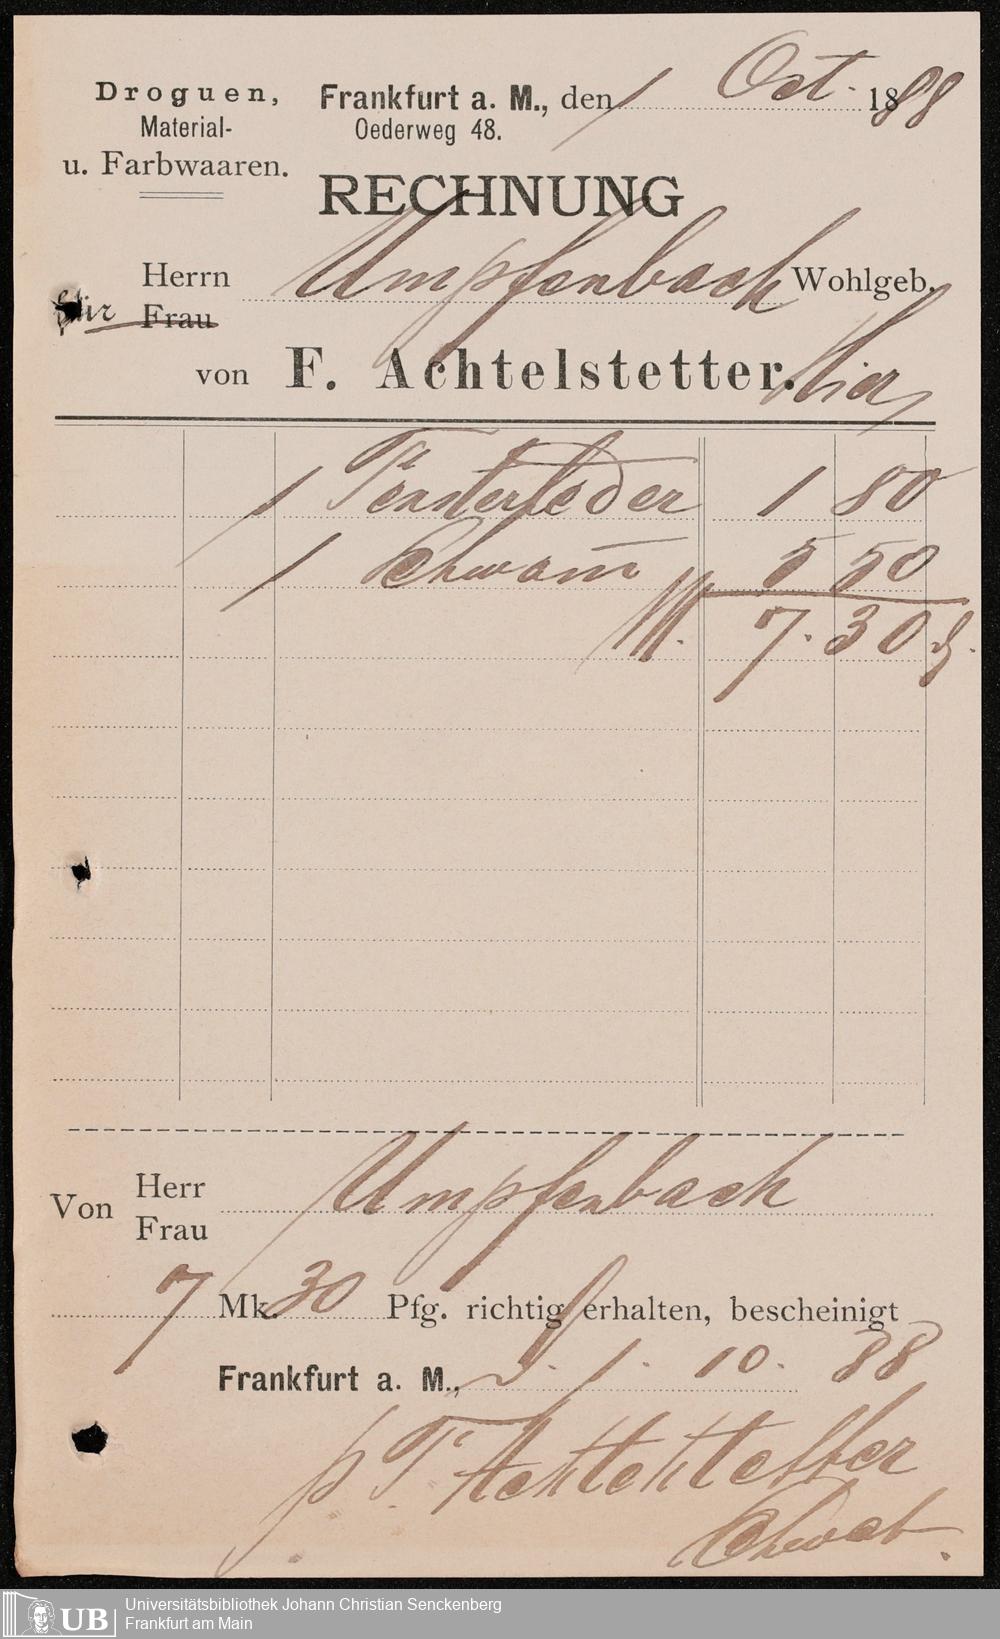 Droguen,
Material-
u. Farbwaaren.
Frankfurt a. M., den 1 Oct. 1888
Oederweg 48.
RECHNUNG
für Herrn Umpfenbach Wohlgeb.
Frau
von F. Achtelstetter. hier
1 Fensterleder 1 80
1 Schwam̅ 5 50
M. 7. 30 ₰.
Von Herr Umpfenbach
Frau
7 Mk. 30 Pfg. richtig erhalten, bescheinigt
Frankfurt a. M., d. 1. 10. 88
p F. Achtelstetter
UB
Universitätsbibliothek Johann Christian Senckenberg
Frankfurt am Main